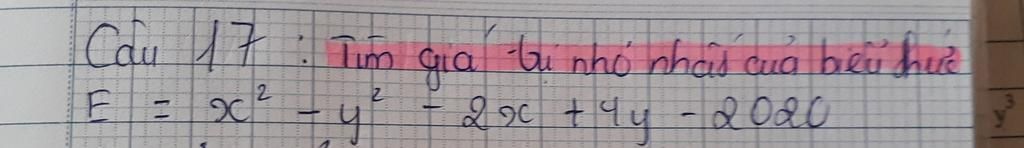 Câu 17 : Tìm giá trị nhỏ nhất của biểu thức
E = x² - y² - 2x + 4y - 2020
y³